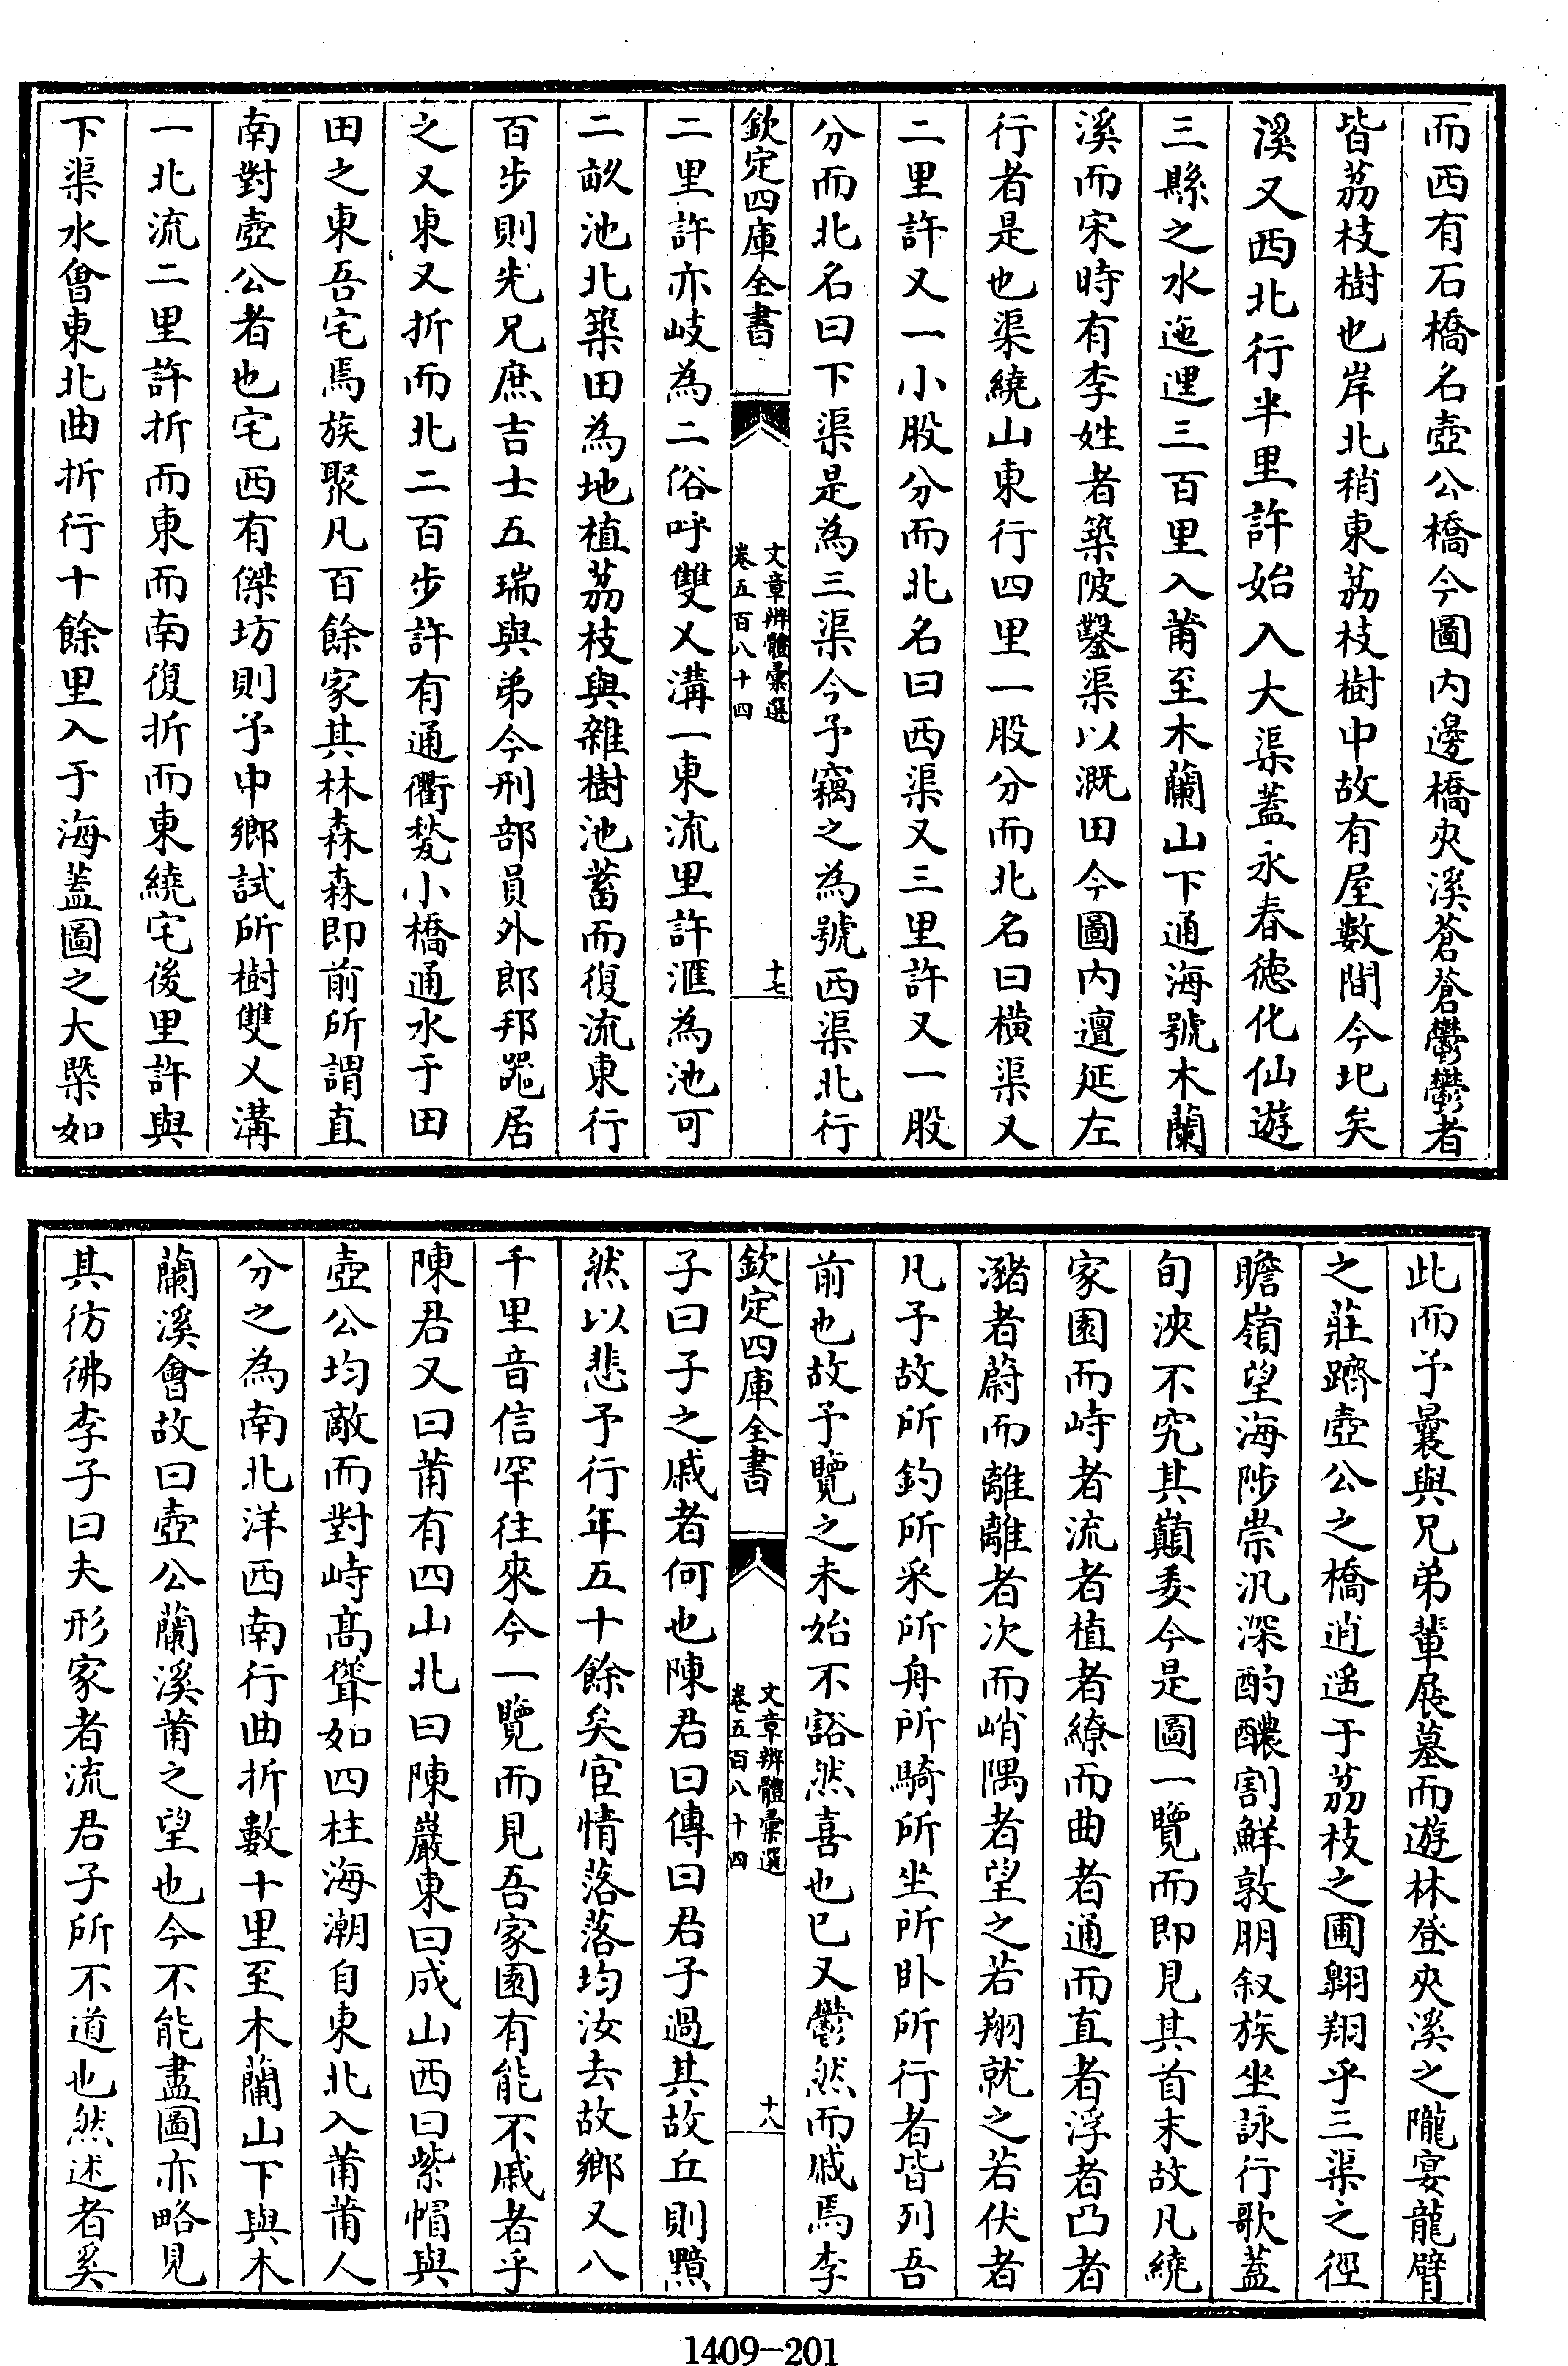 而西有石橋名壺公橋今圖内邊橋夾溪蒼蒼鬱鬱者
皆茘枝樹也岸北稍東茘枝樹中故有屋數間今圯矣
溪又西北行半里許始入大渠蓋永春徳化仙遊
三縣之水迤𨓦三百里入莆至木蘭山下通海號木蘭
溪而宋時有李姓者築陂鑿渠以溉田今圖内邅延左
行者是也渠繞山東行四里一股分而北名曰横渠又
二里許又一小股分而北名曰西渠又三里許又一股
分而北名曰下渠是為三渠今予竊之為號西渠北行
欽定四庫全書
文章辨體彚選
卷五百八十四
十七
二里許亦岐為二俗呼雙乂溝一東流里許滙為池可
二畝池北築田為地植茘枝與雜樹池蓄而復流東行
百步則先兄庶吉士五瑞與弟今刑部員外郎邦噐居
之又東又折而北二百步許有通衢甃小橋通水于田
田之東吾宅焉族聚凡百餘家其林森森即前所謂直
南對壺公者也宅西有傑坊則予中鄉試所樹雙乂溝
一北流二里許折而東而南復折而東繞宅後里許與
下渠水會東北曲折行十餘里入于海蓋圖之大槩如
此而予曩與兄弟輩展墓而遊林登夾溪之隴宴龍臂
之莊躋壺公之橋逍遥于茘枝之圃翺翔乎三渠之徑
瞻嶺望海陟崇汎深酌醲割鮮敦朋叙族坐詠行歌蓋
旬浹不究其巔委今是圖一覽而即見其首末故凡繞
家園而峙者流者植者繚而曲者通而直者浮者凸者
瀦者蔚而離離者次而峭隅者望之若翔就之若伏者
凡予故所釣所釆所舟所騎所坐所卧所行者皆列吾
前也故予覽之未始不豁然喜也已又鬱然而戚焉李
欽定四庫全書
文章辨體彚選
卷五百八十四
十八
子曰子之戚者何也陳君曰傳曰君子過其故丘則黯
然以悲予行年五十餘矣宦情落落均汝去故鄉又八
千里音信罕往來今一覽而見吾家園有能不戚者乎
陳君又曰莆有四山北曰陳巖東曰成山西曰紫帽與
壺公均敵而對峙髙聳如四柱海潮自東北入莆莆人
分之為南北洋西南行曲折數十里至木蘭山下與木
蘭溪會故曰壺公蘭溪莆之望也今不能盡圖亦略見
其彷彿李子曰夫形家者流君子所不道也然述者奚
1409-201